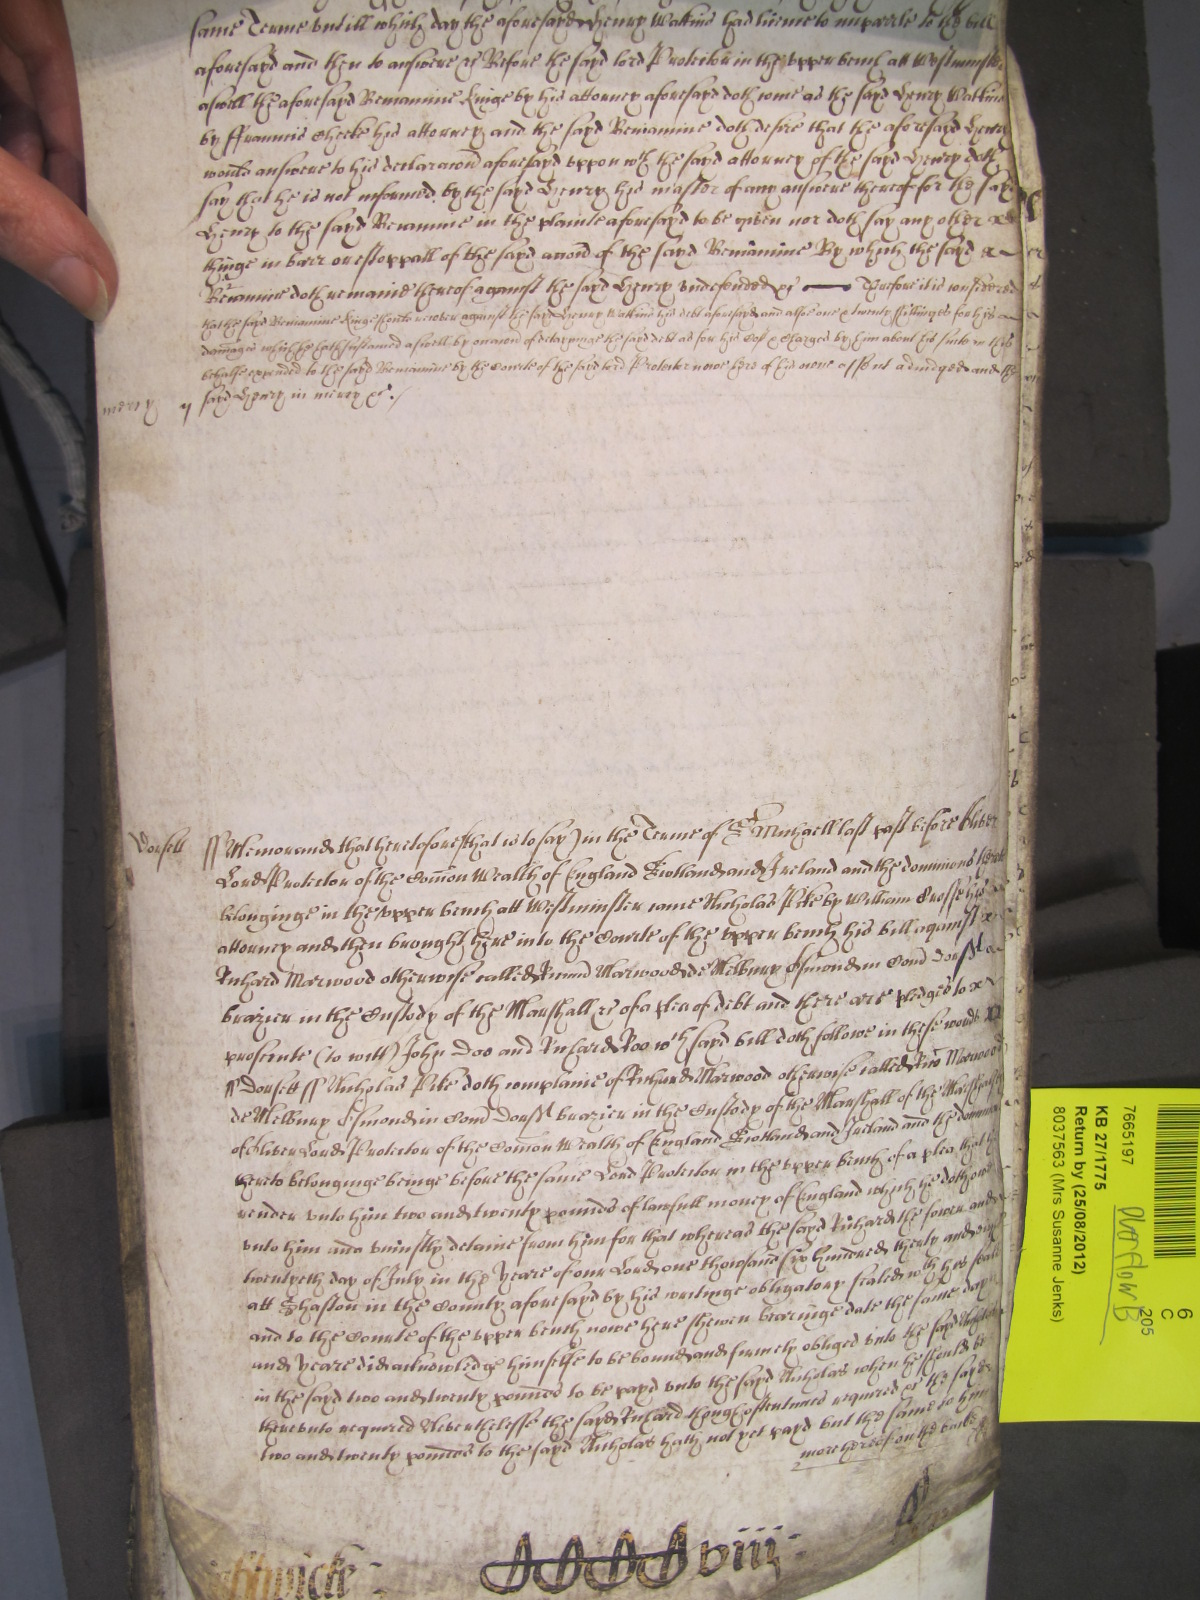 same Terme untill which day the aforesayd Henry Watkins had licence to imparle to the bill
aforesayd and then to answere &c Before the sayd lord Protector in the upper bench att Westminster
aswell the aforesayd Beniamine Kinge by his attorney aforesayd doth come as the sayd Henry Watkins
by ffrancis Cheeke his attorney and the sayd Beniamine doth desire that the aforesayd Henry
would answere to his declaracon aforesayd uppon wch the sayd attorney of the sayd Henry doth
say that he is not informed by the sayd Henry his master of any answere thereof for the sayd
Henry to the sayd Beniamine in the plainte aforesayd to be given nor doth say any other
thinge in barr or estoppall of the sayd accon of the sayd Beniamine By which the sayd
Beniamine doth remaine thereof against the sayd Henry undefended &c Therefore it is considered
that the sayd Beniamine Kinge should recover against the sayd Henry Watkins his debt aforesayd and alsoe one & twenty shillinges for his
damages which he hath sustained aswell by occacon of detayninge the sayd debt as for his Costs & Charges by him about his suite in this
behalfe expended to the sayd Beniamine by the Courte of the sayd lord Protector nowe here of his owne assent adiudged and the
mercy sayd Henry in mercy &c
Dorsett ss Memorand that heretofore (that is to say) in the Terme of St Michaell last past before Oliver
Lord Protector of the Comon Wealth of England Scotland and Ireland and the dominions thereto
belonginge in the upper bench att Westminster came Nicholas Pike by William Crosse his
attorney and then brought here into the Courte of the upper bench his bill against
Richard Marwood otherwise called Ricum Marwood de Melbury Osmond in Com Dorsst
brazier in the Custody of the Marshall &c of a plea of debt and there are pledges to
prosecute (to witt) John Doo and Richard Roo wch sayd bill doth followe in these words
ss Dorsett ss Nicholas Pike doth complaine of Richard Marwood otherwise called Ricu Marwood
de Melbury Osmond in Com Dorsst brazier in the Custody of the Marshall of the Marshalsey
of Oliver Lord Protector of the Comon Wealth of England Scotland and Ireland and the dominions
thereto belonginge beinge before the same Lord Protector in the upper bench of a plea that he
render unto him two and twenty pounds of lawfull money of England which he doth owe
unto him and uniustly detaine from him for that whereas the sayd Richard the fower and
twentyeth day of July in the Yeare of our Lord one thousand six hundred thirty and eight
att Shaston in the County aforesayd by his writinge obligatory sealed with his seale
and to the Courte of the upper bench nowe here shewen bearinge date the same day
and Yeare did acknowledge himselfe to be bound and firmely obliged unto the sayd Nicholas
in the sayd two and twenty pounds to be payd unto the sayd Nicholas when he should be
thereunto required Neverthelesse the sayd Richard though oftentimes required &c the sayd
two and twenty pounds to the sayd Nicholas hath not yet payd but the same to him
more hereof on the backe
viii
7665197
KB 27/1775
Return by (25/08/2012)
8037563 (Mrs Susanne Jenks)
6
C
205